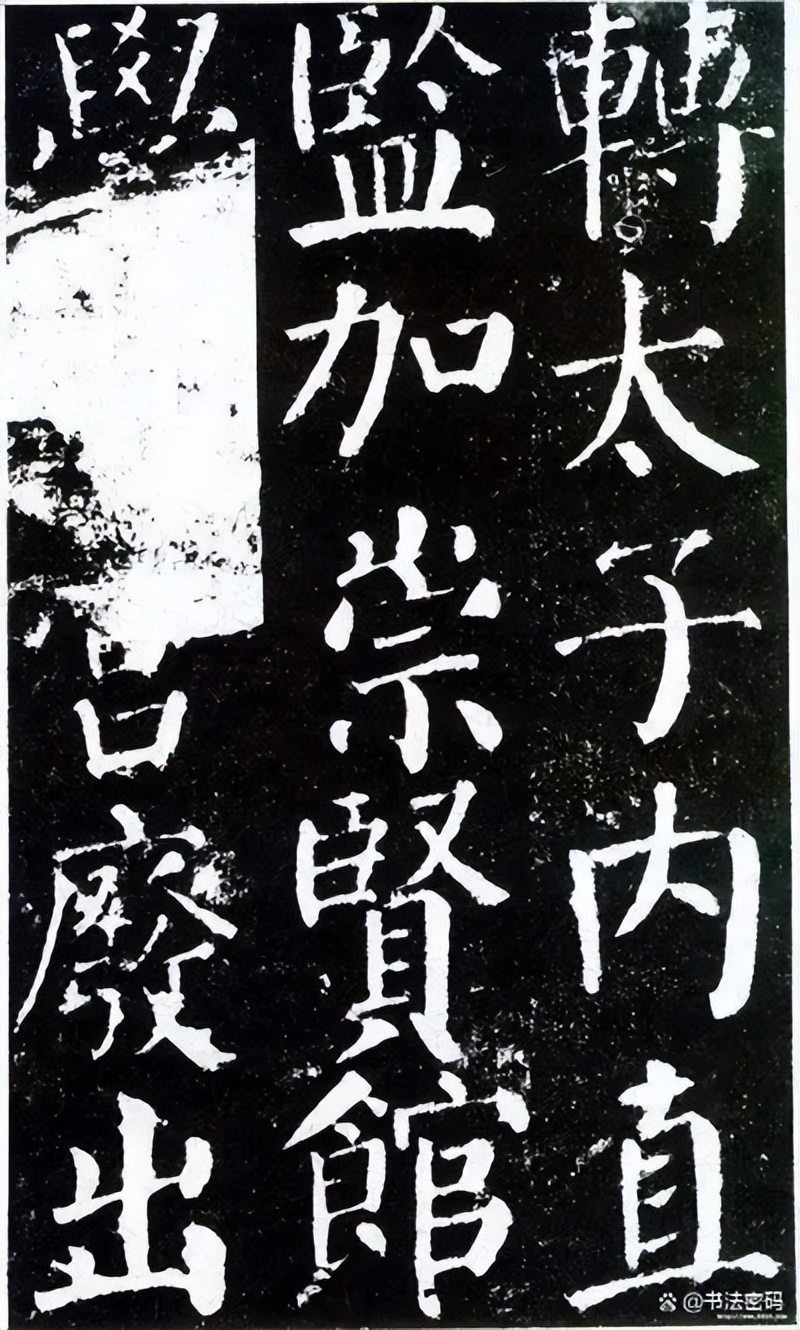 轉太子内直
監加崇賢館
學廢出
@书法密码